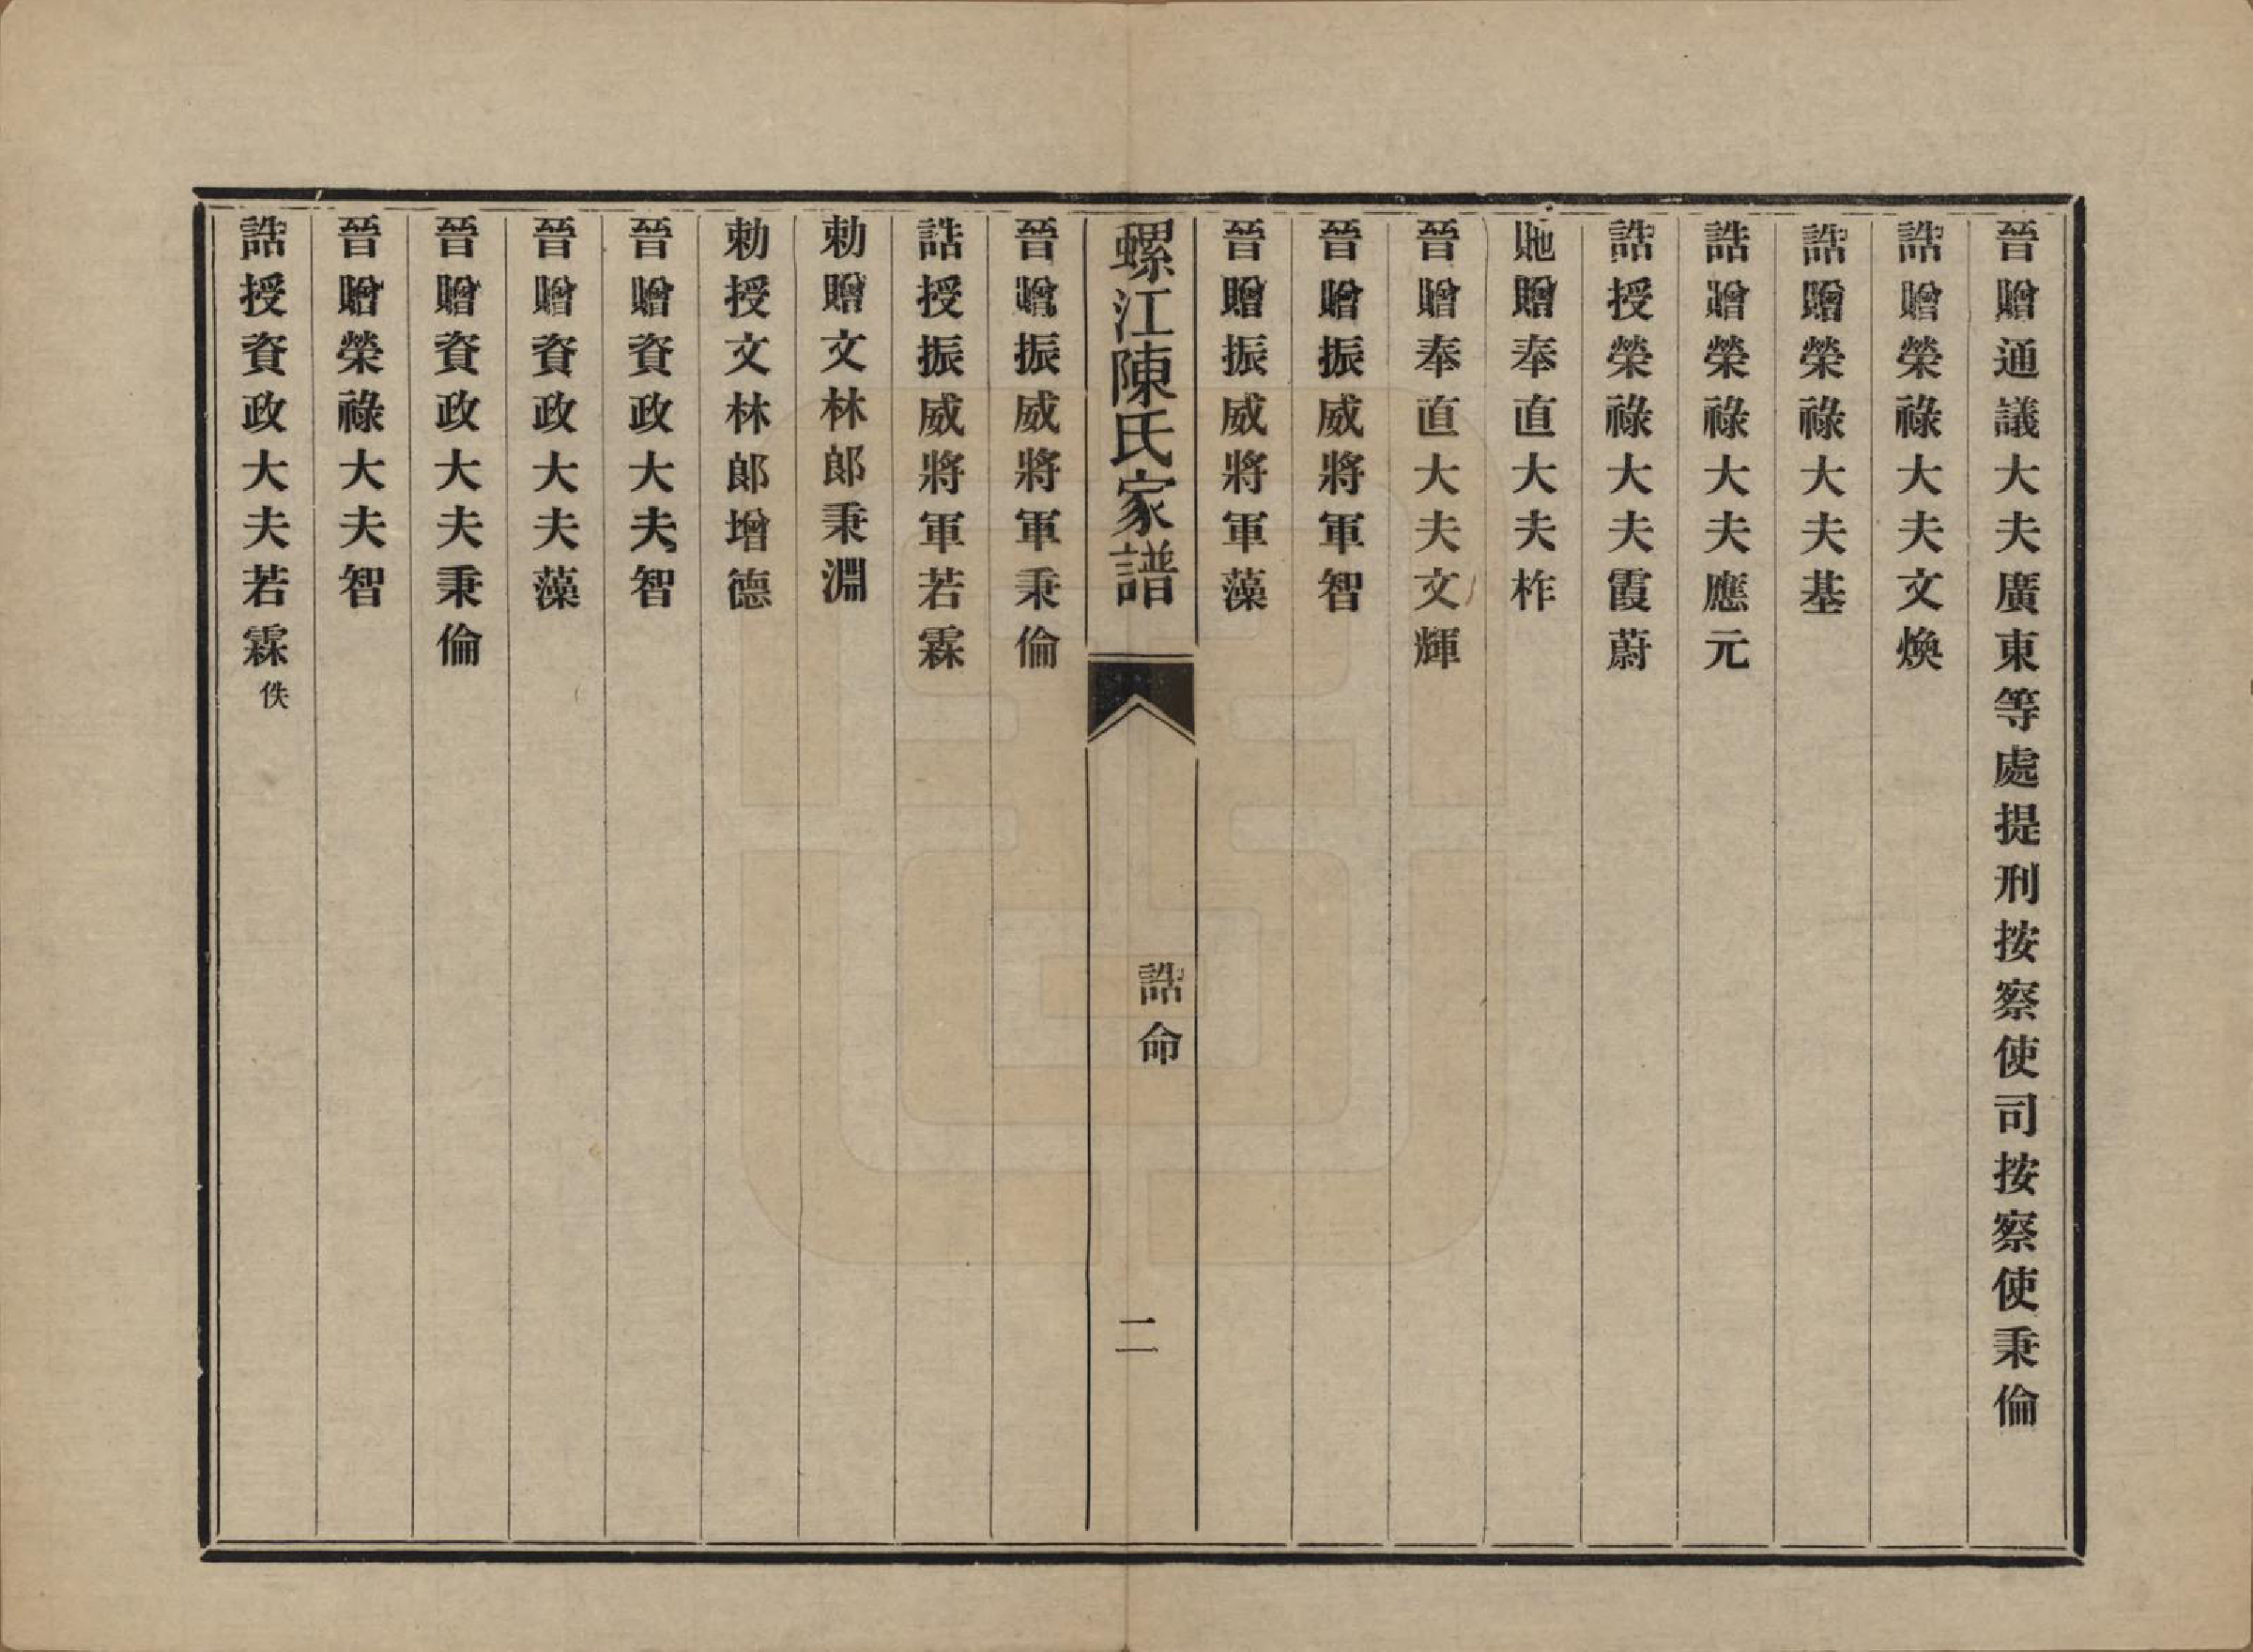 晉贈通議大夫廣東等處提刑按察使司按察使秉倫
誥贈榮祿大夫文煥
誥贈榮祿大夫基
誥贈榮祿大夫應元
誥授榮祿大夫霞蔚
貤贈奉直大夫柞
晉贈奉直大夫文輝
晉贈振威將軍智
晉贈振威將軍藻
螺江陳氏家譜
誥命
二
晉贈振威將軍秉倫
誥授振威將軍若霖
勅贈文林郎秉淵
勅授文林郎增德
晉贈資政大夫智
晉贈資政大夫藻
晉贈資政大夫秉倫
晉贈榮祿大夫智
誥授資政大夫若霖佚